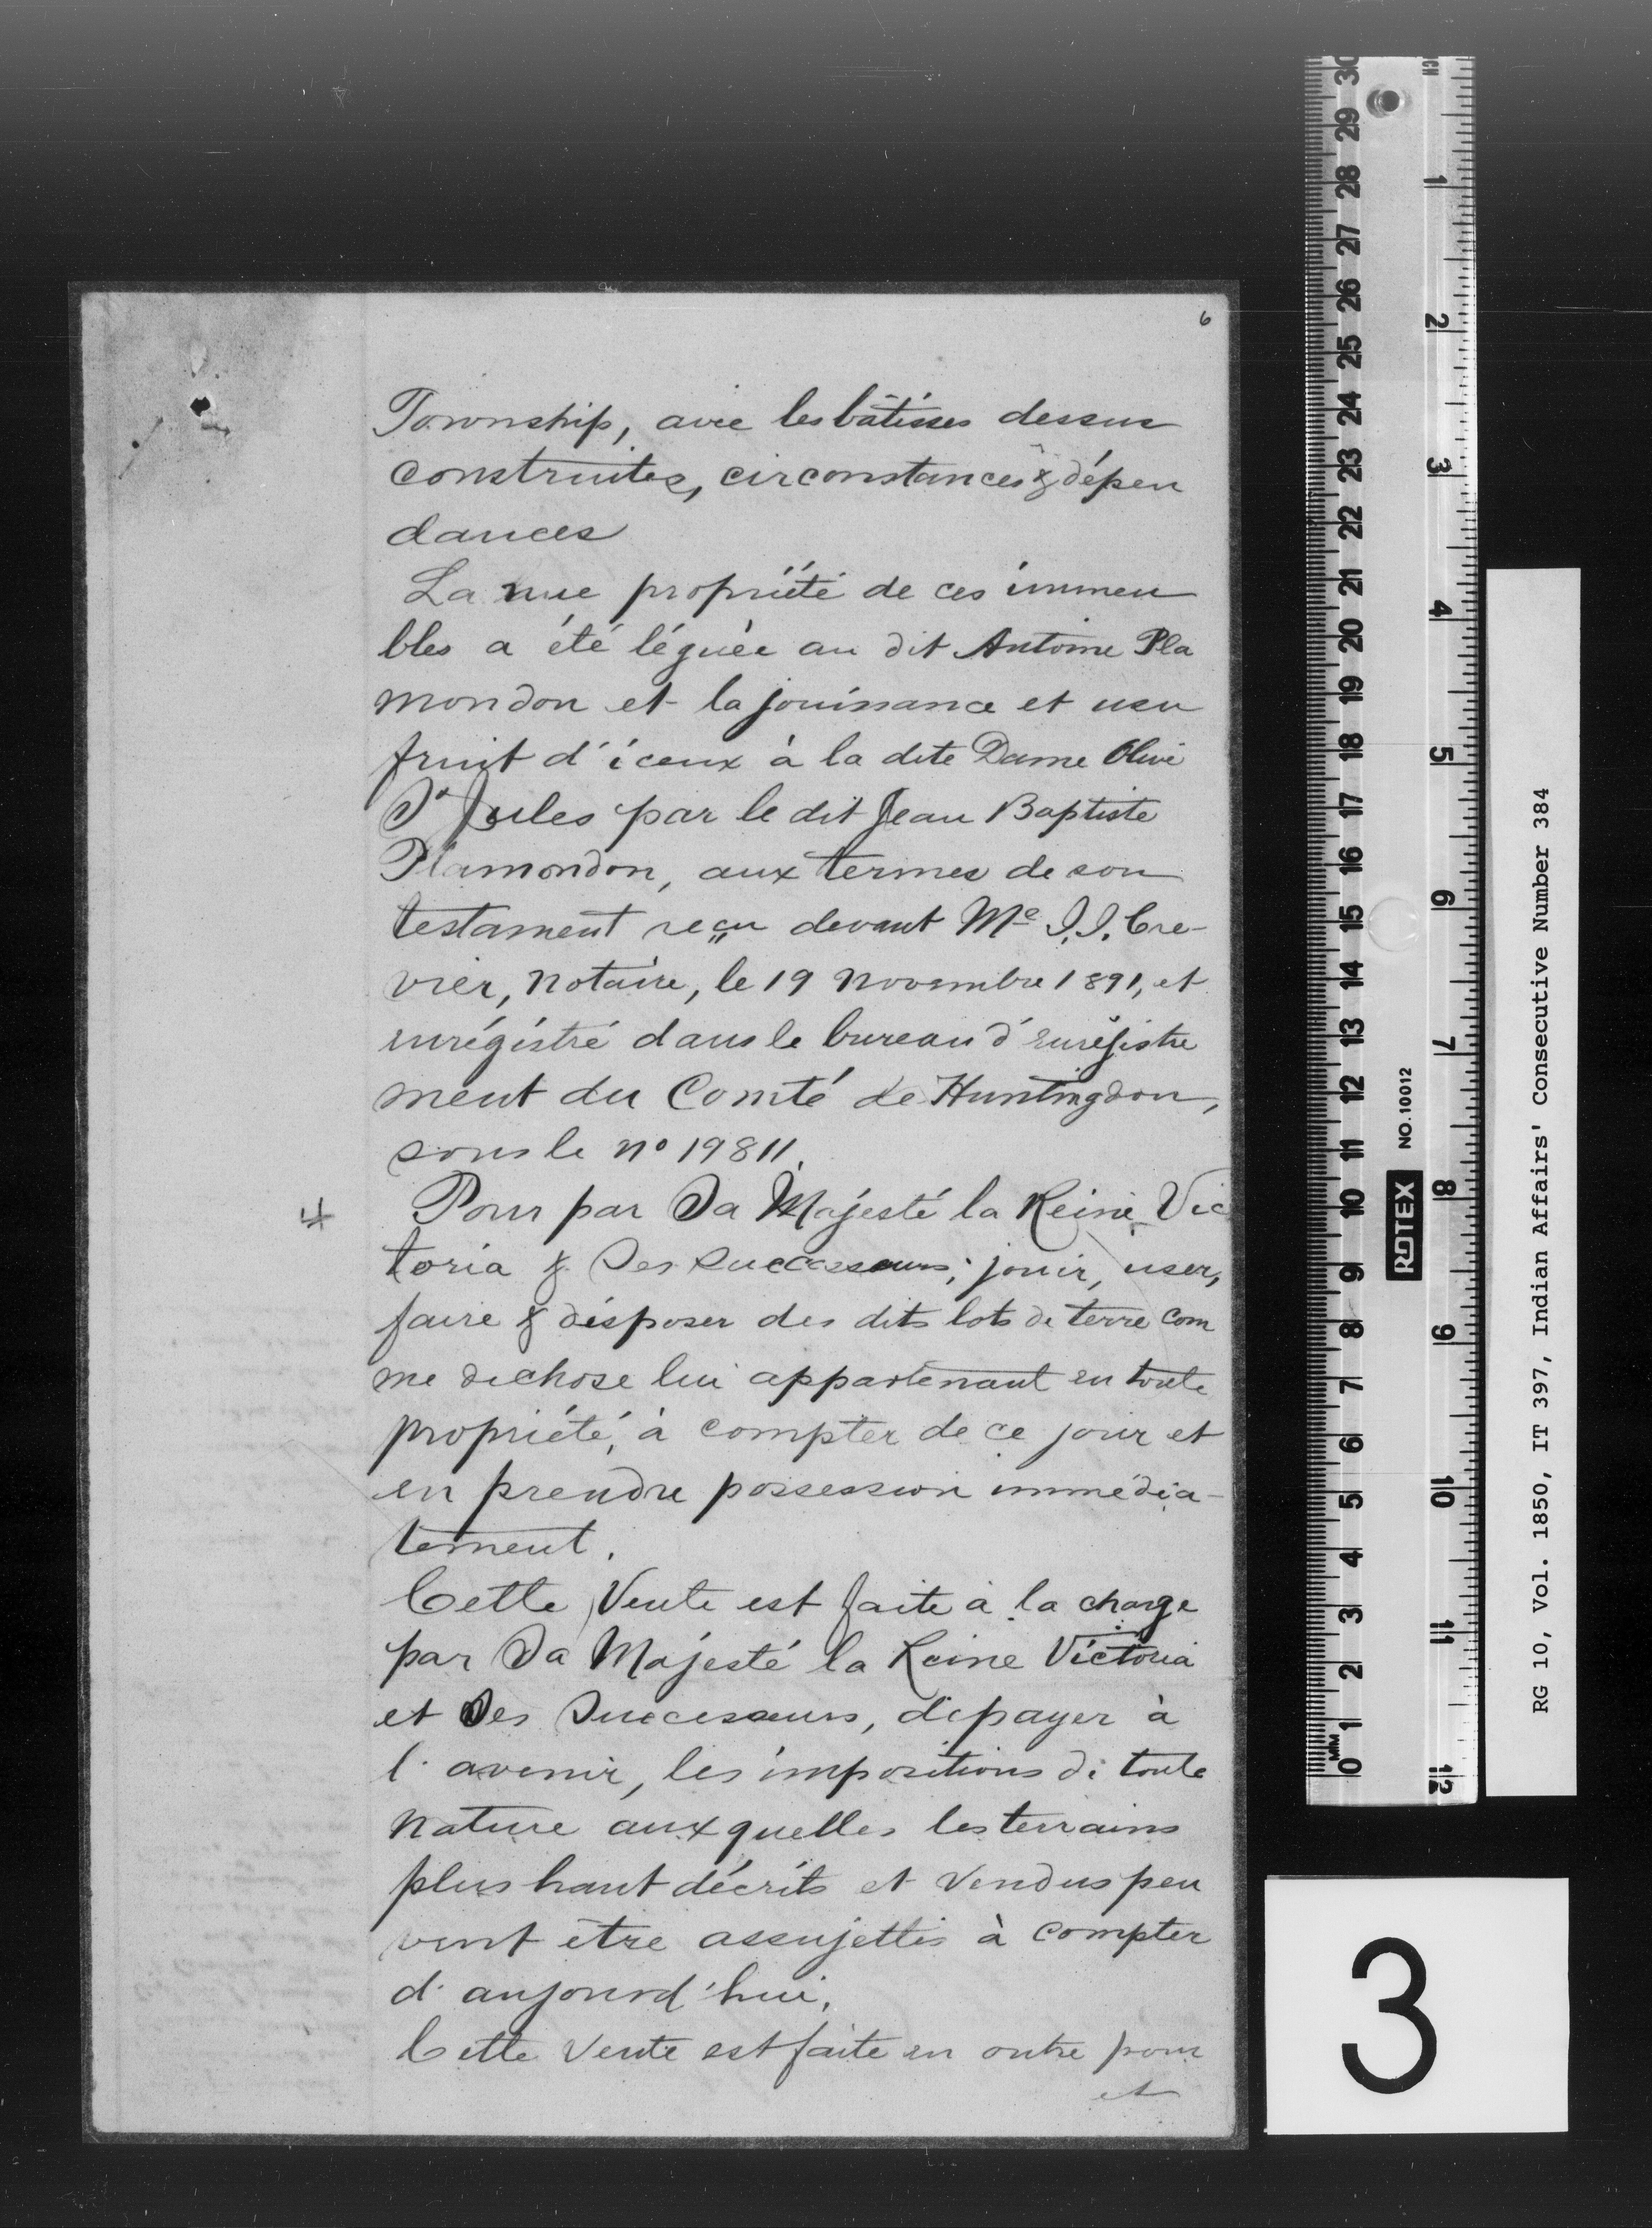 6
Township, avec les bâtisses dessus
construites, circonstances & dépen
dances
La nue propriété de ces immeu
bles a été léguée au dit Antoine Pla
mondon et la jouissance et usu
fruit d'iceux à la dite Dame Olive
St Jules par le dit Jean Baptiste
Plamondon, aux termes de son
testament reçu devant Me I. I. Cre-
vier, Notaire, le 19 Novembre 1891, et
enrégistré dans le bureau d'enrégistre
ment du Comté de Huntingdon,
sous le no 19811.
Pour par Sa Majesté la Reine Vic
toria & Ses Successeurs, jouir, user,
faire & disposer des dits lots de terre com
me de chose lui appartenant en toute
propriété, à compter de ce jour et
en prendre possession immédia-
tement.
Cette Vente est faite à la charge
par Sa Majesté la Reine Victoria
et Ses Successeurs, de payer à
l'avenir, les impositions de toute
Nature auxquelles les terrains
plus haut décrits et Vendus peu
vent être assujettis à compter
d'aujourd'hui.
Cette Vente est faite en outre pour
et
RG 10, Vol. 1850, IT 397, Indian Affairs' Consecutive Number 384
ROTEX NO. 10012
3